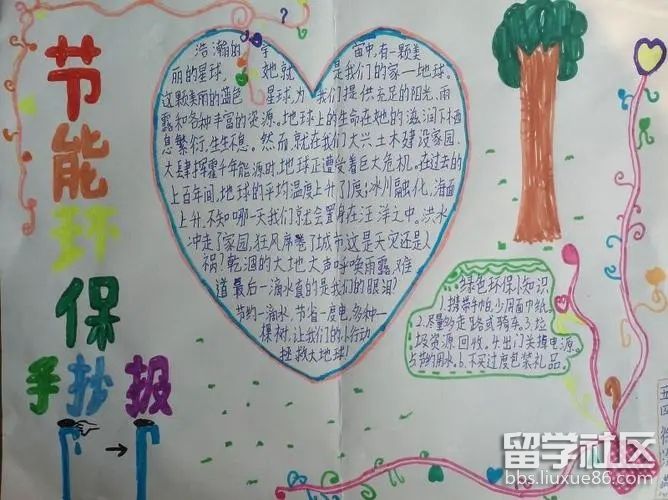 节能环保
手抄报
浩瀚的宇宙中,有一颗美
丽的星球,她就是我们的家—地球。
这颗美丽的蓝色星球,为我们提供充足的阳光、雨
露和各种丰富的资源,地球上的生命在她的滋润下栖
息繁衍,生生不息。然而,就在我们大兴土木建设家园,
大肆挥霍千年能源时,地球正遭受着巨大危机。在过去的
上百年间,地球的平均温度上升了1度;冰川融化,海面
上升,不知哪一天我们就会置身在汪洋之中。洪水
冲走了家园,狂风席卷了城市这是天灾还是人
祸?乾涸的大地大声呼唤雨露,难
道最后一滴水真的是我们的眼泪?
节约一滴水,节省一度电,多种一
棵树,让我们的小行动
拯救大地球!
绿色环保小知识
1.携带手帕,少用面巾纸。
2.尽量多走路或骑车.3.垃
圾资源回收。4.出门关掉电源。
5.节约用水。6.不买过度包装礼品。
留学社区
bbs.liuxue86.com